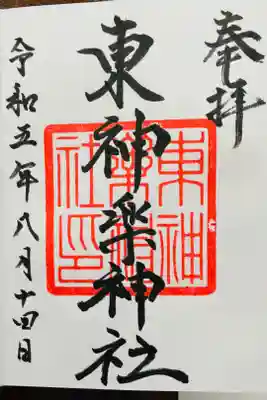 奉拝
東神楽神社
東神楽神社印
令和五年八月十四日